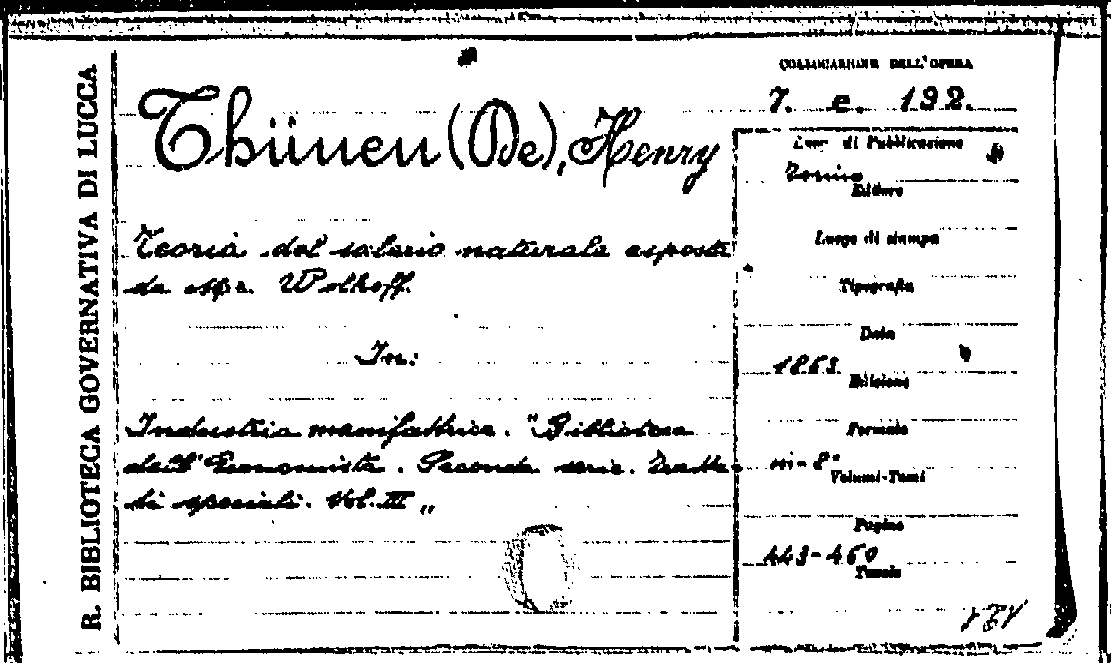 R. BIBLIOTECA GOVERNATIVA DI LUCCA
COLLOCAZIONE DELL'OPERA
7. e. 192.
Thünen (De), Henry
Teoria del salario naturale esposta
da Wolkoff.
In:
Industria manifattrice. "Biblioteca
dell'Economista. Seconda serie. Tratta-
ti speciali. Vol. III „
Luogo di Pubblicazione
Torino
Editore
Luogo di stampa
Tipografia
Data
1863
Edizione
Formato
in-8°
Volumi-Tomi
Pagine
443-460
Tavole